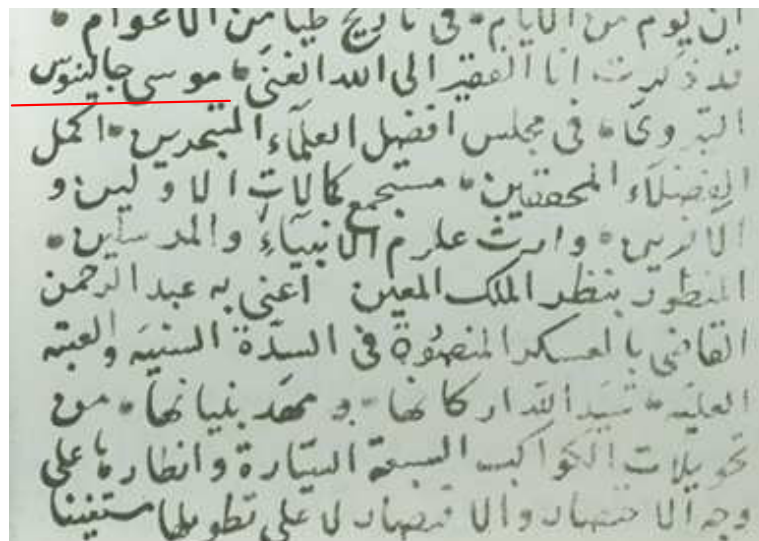 ان يوم من الايام ۰ فى تاريخ طيا من الاعوام ۰
قد ذكرت انا الفقير الى الله الغنى ۰ موسى جالينوس
فى مجلس افضل العلماء المتبحرين ۰ اكمل
الفضلاء المحققين ۰ مستجمع كمالات الاولين و
الآخرين ۰ وارث علوم الانبياء والمرسلين ۰
المنظور بنظر الملك المعين اعنى به عبد الرحمن
القاضى بالعسكر المنصورة فى السدة السنيه والعتبه
العليه ۰ شيد الله اركانها ۰ و مهد بنيانها ۰ من
تحويلات الكواكب السبعة السيارة وانظارها على
وجه الاختصار والاقتصار لا على تطويلها مستغنيا